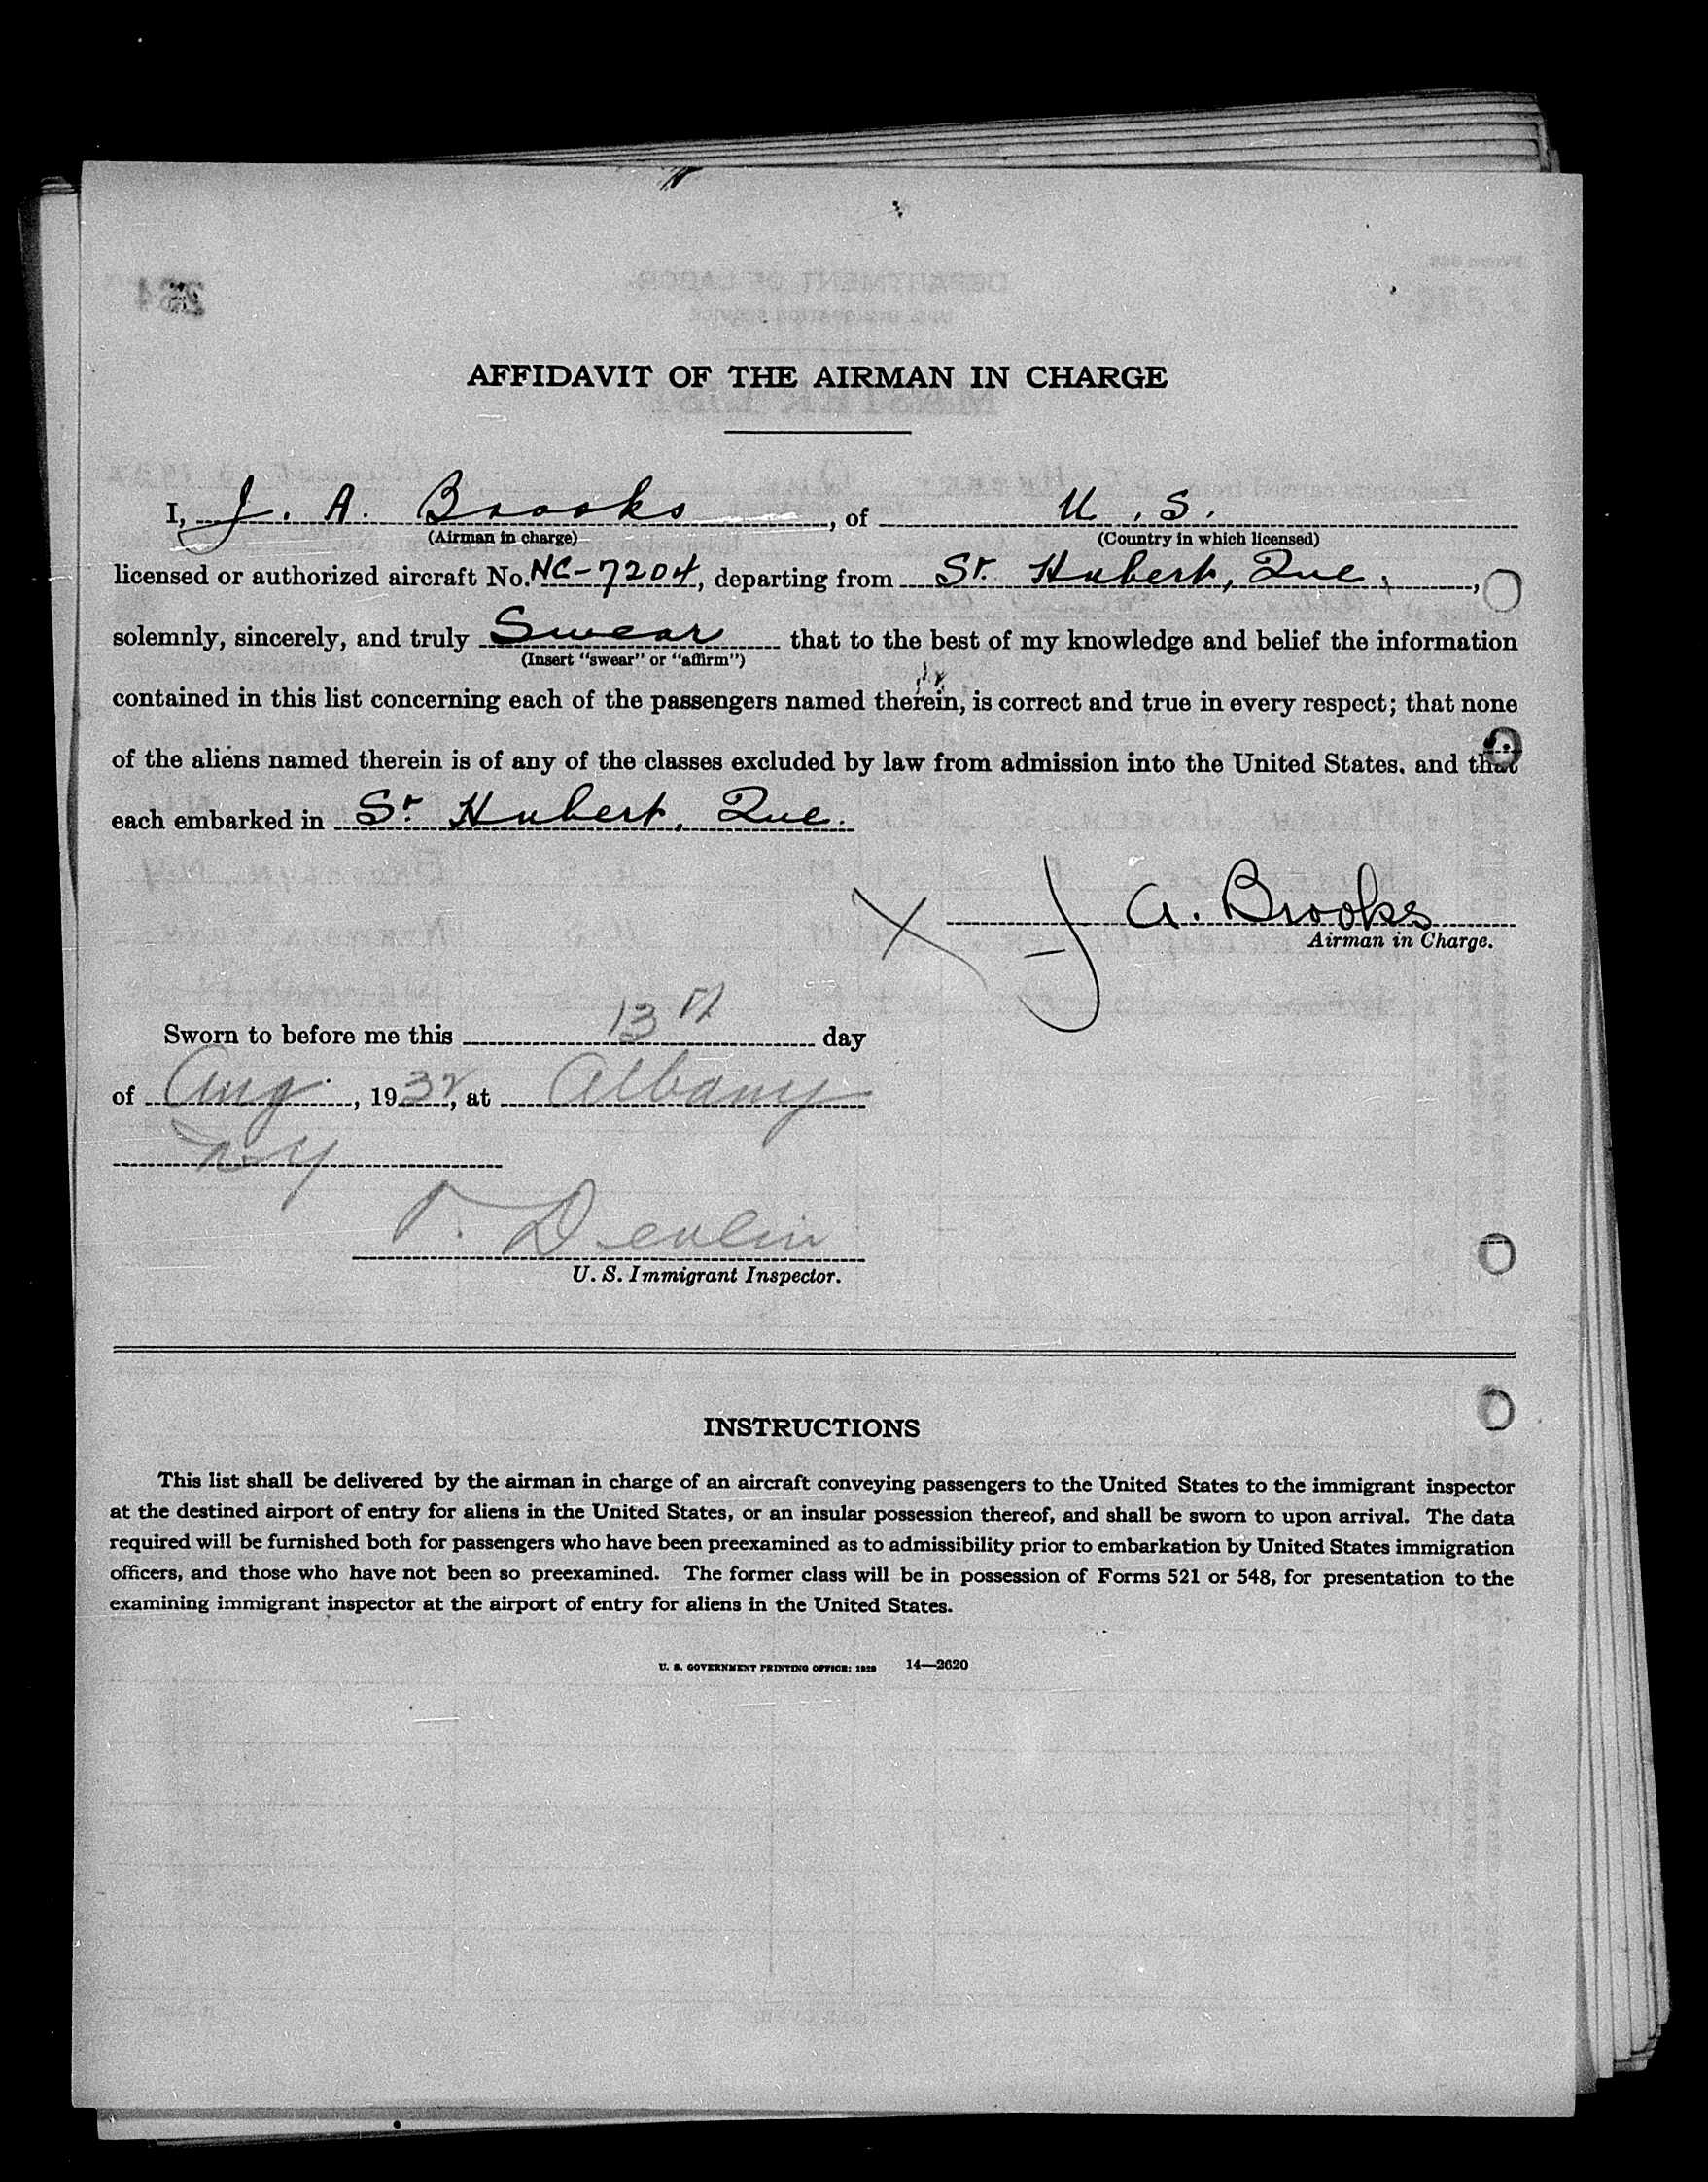 AFFIDAVIT OF THE AIRMAN IN CHARGE
I, J. A. Brooks, of U. S.
(Airman in charge) (Country in which licensed)
licensed or authorized aircraft No. NC-7204, departing from St. Hubert, Que.,
solemnly, sincerely, and truly Swear that to the best of my knowledge and belief the information
(Insert "swear" or "affirm")
contained in this list concerning each of the passengers named therein, is correct and true in every respect; that none
of the aliens named therein is of any of the classes excluded by law from admission into the United States. and that
each embarked in St. Hubert, Que.
X J A. Brooks
Airman in Charge.
Sworn to before me this 13th day
of Aug., 1932, at Albany
NY
P. Devlin
U. S. Immigrant Inspector.
INSTRUCTIONS
This list shall be delivered by the airman in charge of an aircraft conveying passengers to the United States to the immigrant inspector
at the destined airport of entry for aliens in the United States, or an insular possession thereof, and shall be sworn to upon arrival. The data
required will be furnished both for passengers who have been preexamined as to admissibility prior to embarkation by United States immigration
officers, and those who have not been so preexamined. The former class will be in possession of Forms 521 or 548, for presentation to the
examining immigrant inspector at the airport of entry for aliens in the United States.
U. S. GOVERNMENT PRINTING OFFICE: 1929 14—2620